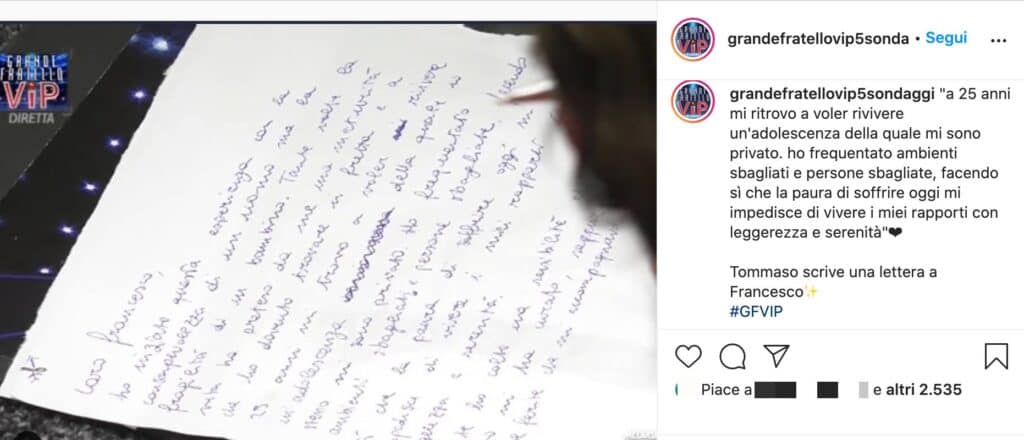 GRANDE
FRATELLO
VIP
DIRETTA
Caro Francesco,
ho iniziato questa esperienza con la
consapevolezza di un uomo ma la
fragilità di un bambino. Tante volte la
vita ha preteso da me una maturità
che ho dovuto trovare in fretta e a
25 anni mi trovo a voler rivivere
un'adolescenza della quale io
stesso mi sono privato. Ho frequentato
ambienti sbagliati e persone sbagliate, facendo
che la paura di soffrire oggi mi
di vivere i miei rapporti
e serenità.
te ho colto una sensibilità
mi ha curato
grandefratellovip5sonda • Segui
grandefratellovip5sondaggi "a 25 anni
mi ritrovo a voler rivivere
un'adolescenza della quale mi sono
privato. ho frequentato ambienti
sbagliati e persone sbagliate, facendo
sì che la paura di soffrire oggi mi
impedisce di vivere i miei rapporti con
leggerezza e serenità"❤
Tommaso scrive una lettera a
Francesco✨
#GFVIP
Piace a e altri 2.535